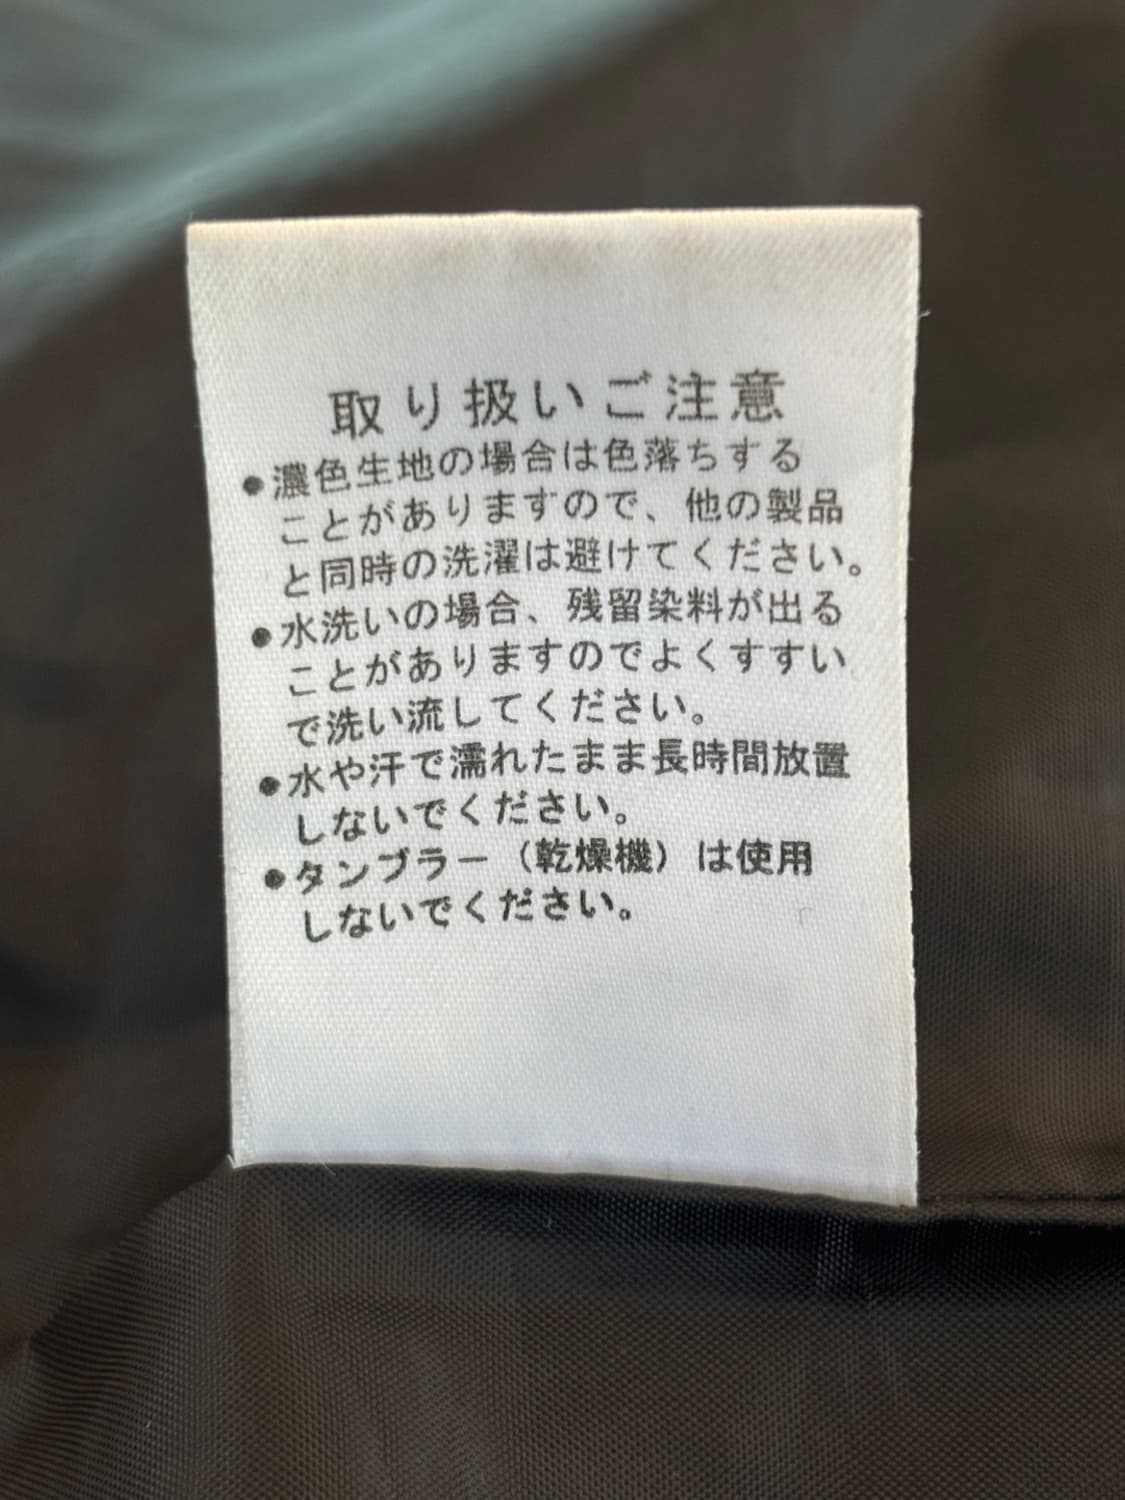 取り扱いご注意
●濃色生地の場合は色落ちする
ことがありますので、他の製品
と同時の洗濯は避けてください。
●水洗いの場合、残留染料が出る
ことがありますのでよくすすい
で洗い流してください。
●水や汗で濡れたまま長時間放置
しないでください。
●タンブラー（乾燥機）は使用
しないでください。